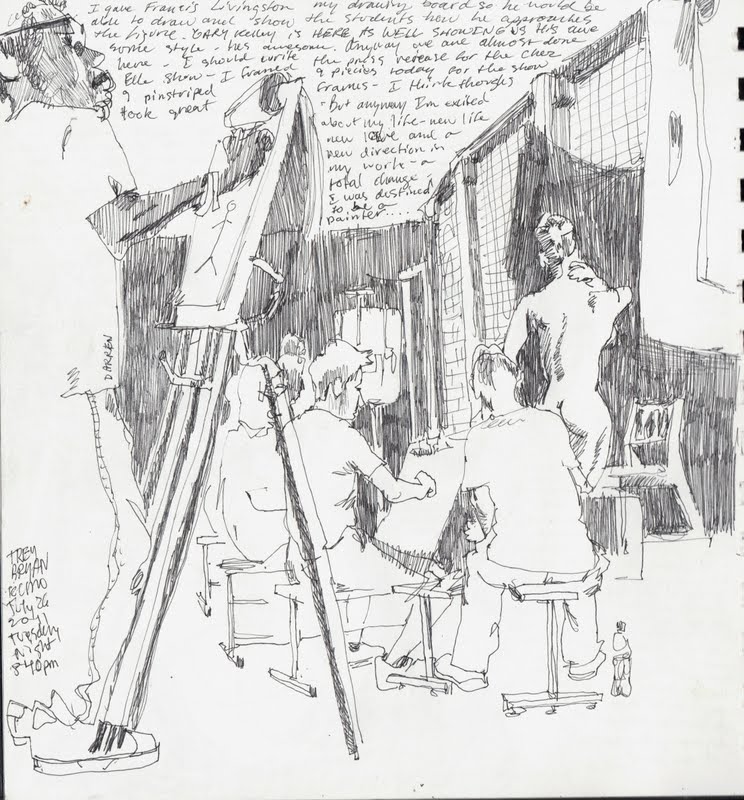 I gave Francis Livingston my drawing board so he would be
able to draw and show the students how he approaches
the figure. GARY Kelley is HERE AS WELL SHOWING US his awe
some style - hes awesome. Anyway we are almost done
here - I should write the press release for the Chez
Elle show - I framed 9 piecies today for the show
9 pinstriped frames - I think thongs
look great
"But anyway Im exited
about my life - new life
new love and a
new direction in
my work - a
total change,
I was destined
to be a
painter....
DARREN
TREY
BRYAN
KCMO
July 26
2011
Tuesday
Night
8:40pm